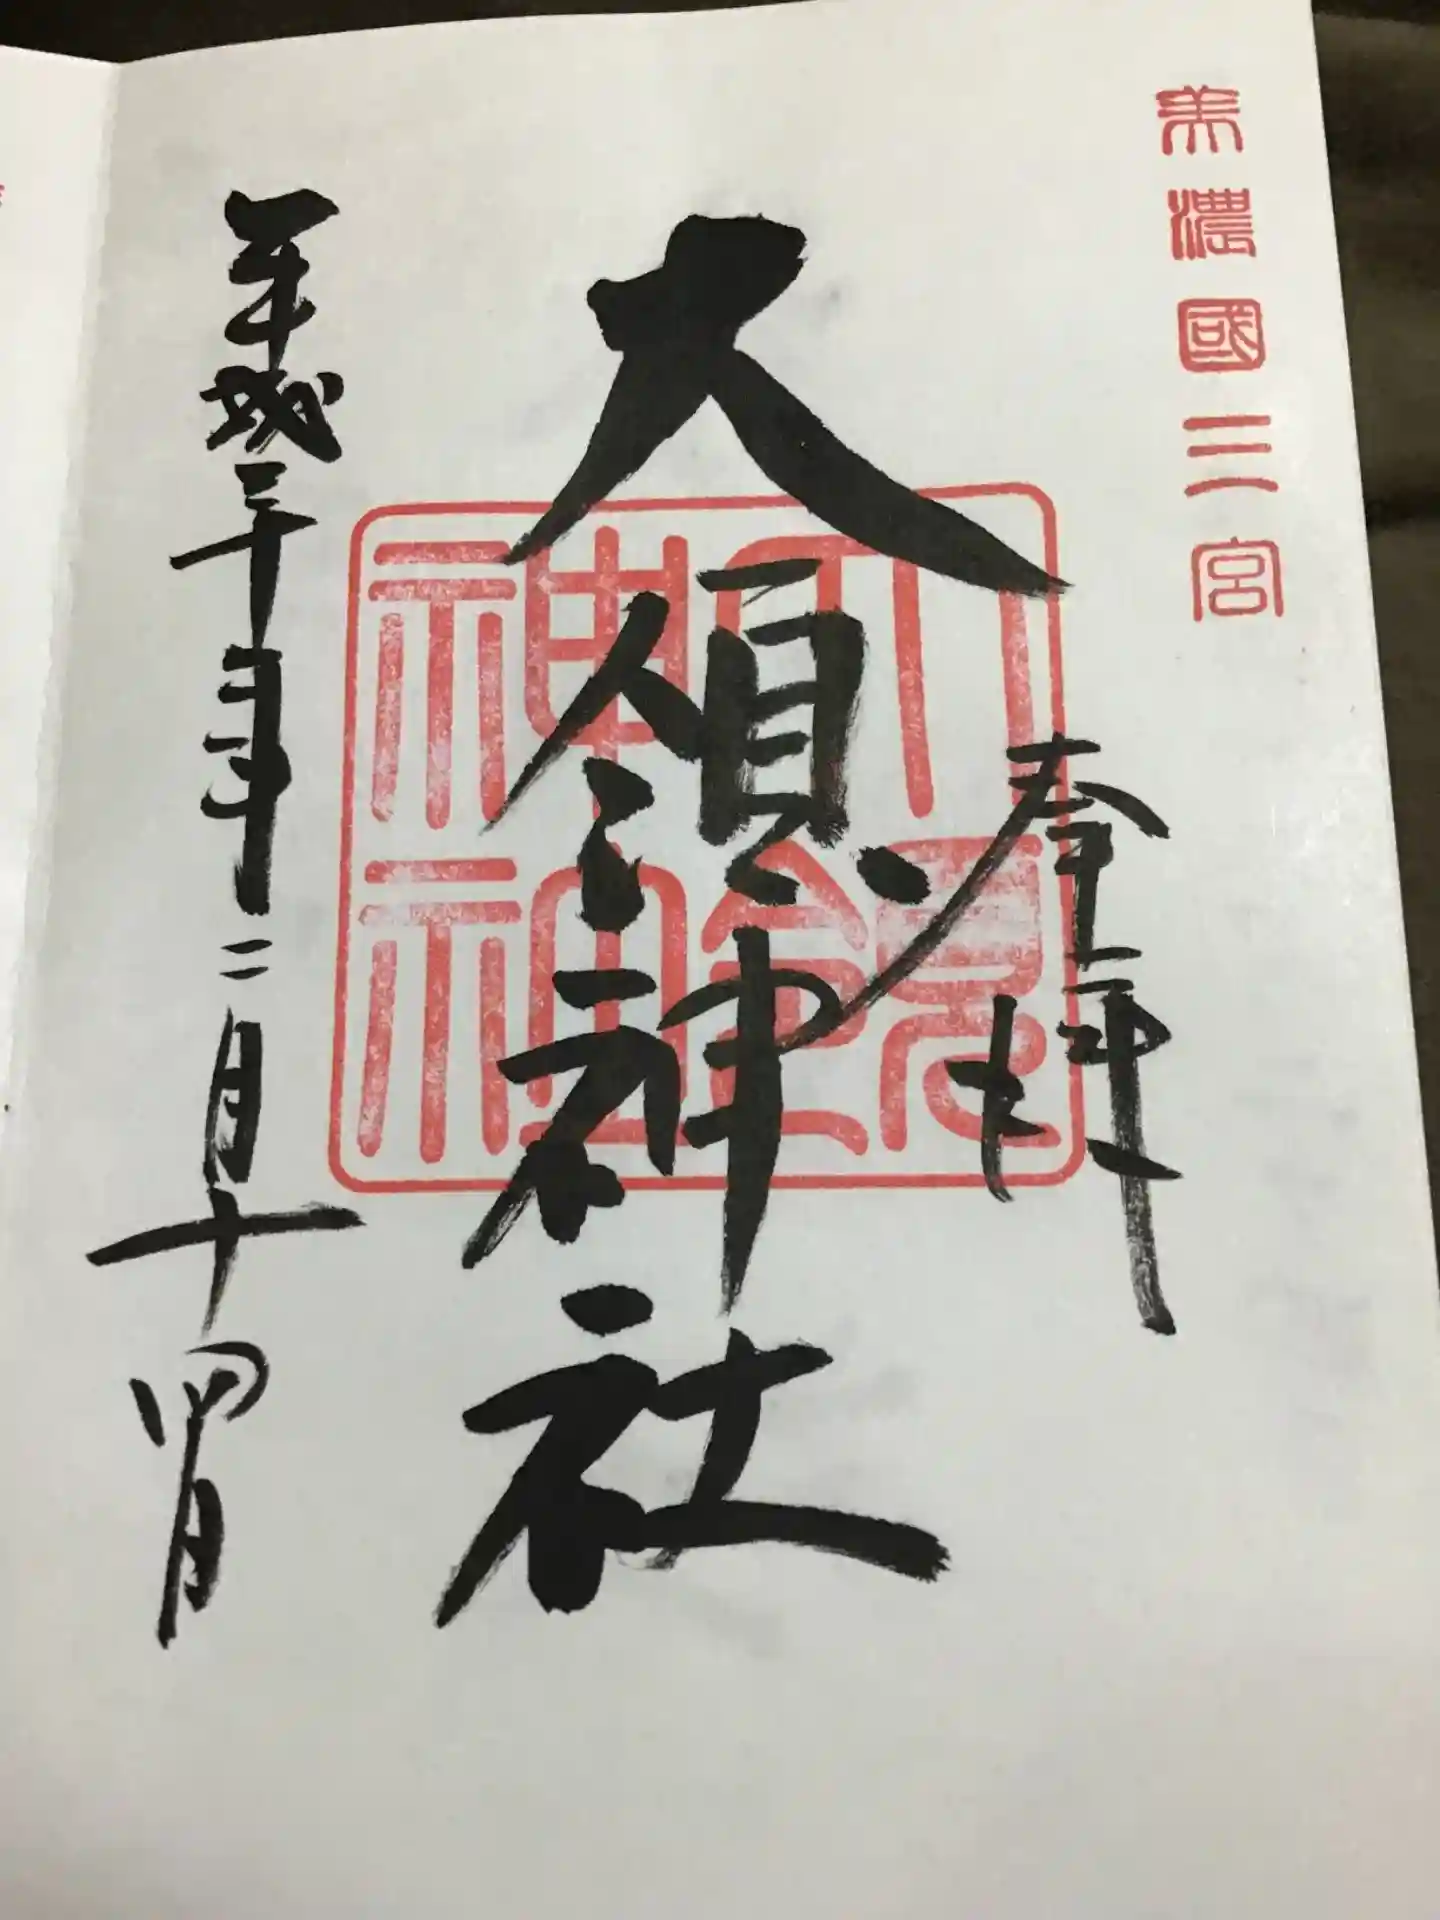 美濃國三宮
奉拝
大領神社
大領神社
平成三十年二月十四日